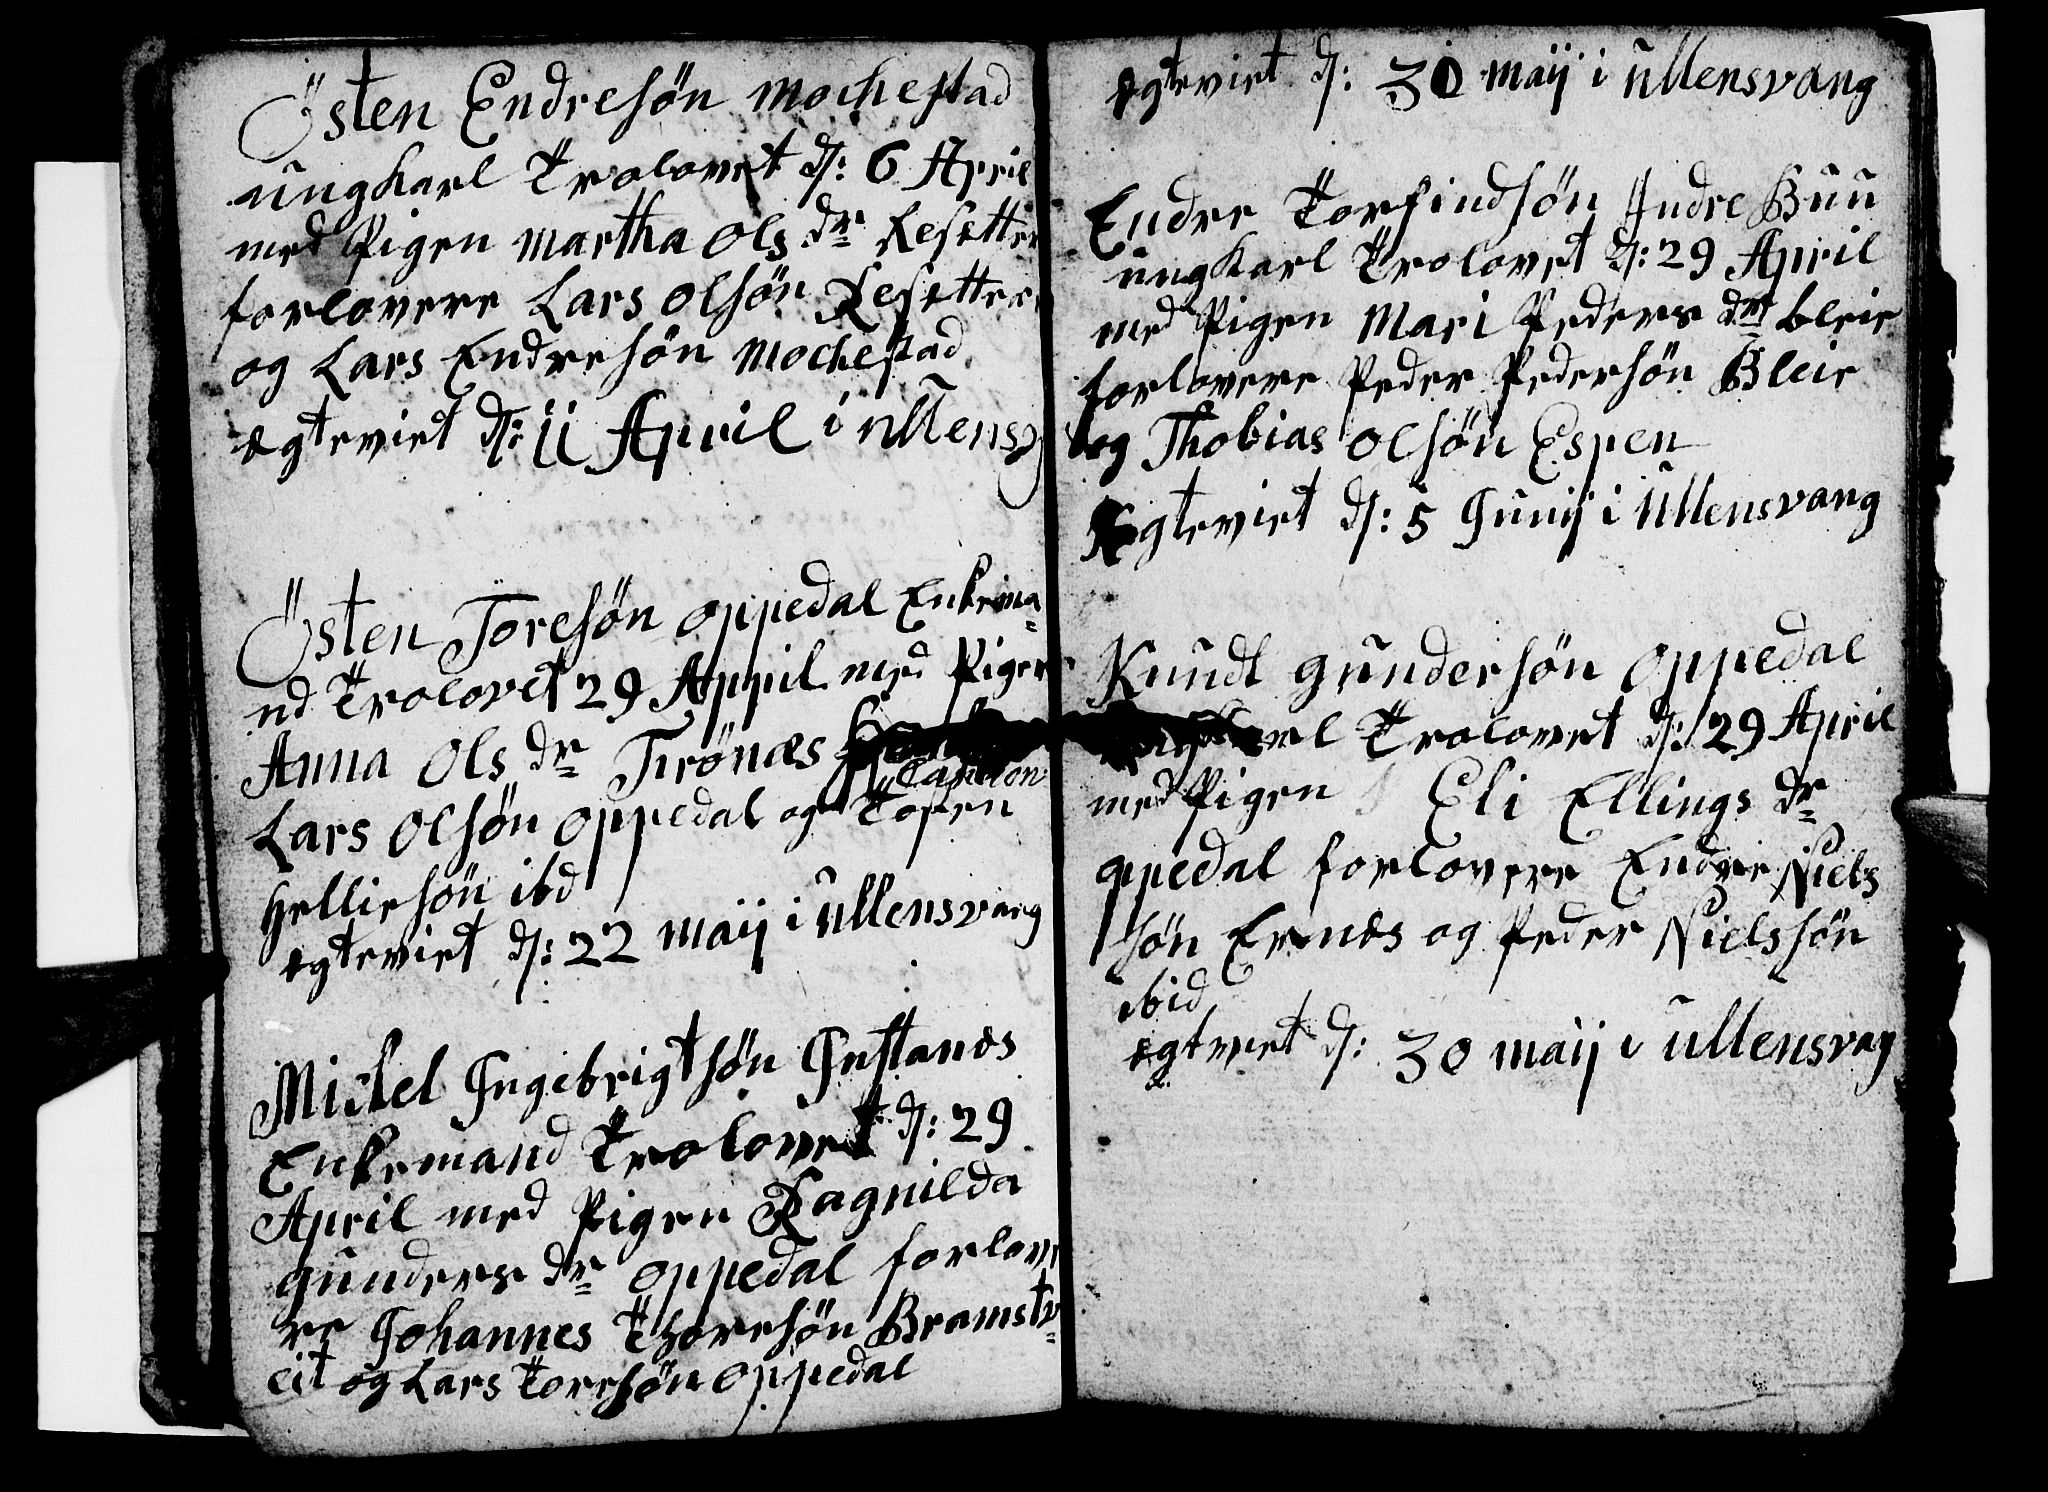 Østen Endresøn Mochestad
ungkarl Trolovet d: 6 April
med Pigen Martha Ols dr Resetter
forlovere Lars Olsøn Resetter
og Lars Endresøn Mochestad
egteviet d: 11 April i ullensv
Østen Toresøn Oppedal Enkema=
nd Trolovet 29 Appil med Pigen
Anna Ols dr Tirønæs
Lars Olsøn Oppedal og Tosten
Helliesøn ibd
egteviet d: 22 Maij i ullensvang
Mickel Ingebrigtsøn Instanes
Enkemand Trolovet d: 29
April med Pigen Ragnilda
gunders dr Oppedal forlove
re Johannes Thoresøn Bramstv=
eit og Lars Toresøn Oppedal
egteviet d: 30 Maij i ullensvang
Endre Torfindsøn Indre Buu
ungkarl Trolovet d: 29 April
med Pigen Mari Peders dr bleie
forlovere Peder Pedersøn Bleie
og Thobias Olsøn Espen
Egteviet d: 5 Junij i ullensvang
Knudt gundersøn Oppedal
ungkarl Trolovet d: 29 April
med Pigen Eli Ellings dr
oppedal forlovere Endre Niels
søn Ernes og Peder Nielssøn
ibid
egteviet d: 30 Maij i ullensvang